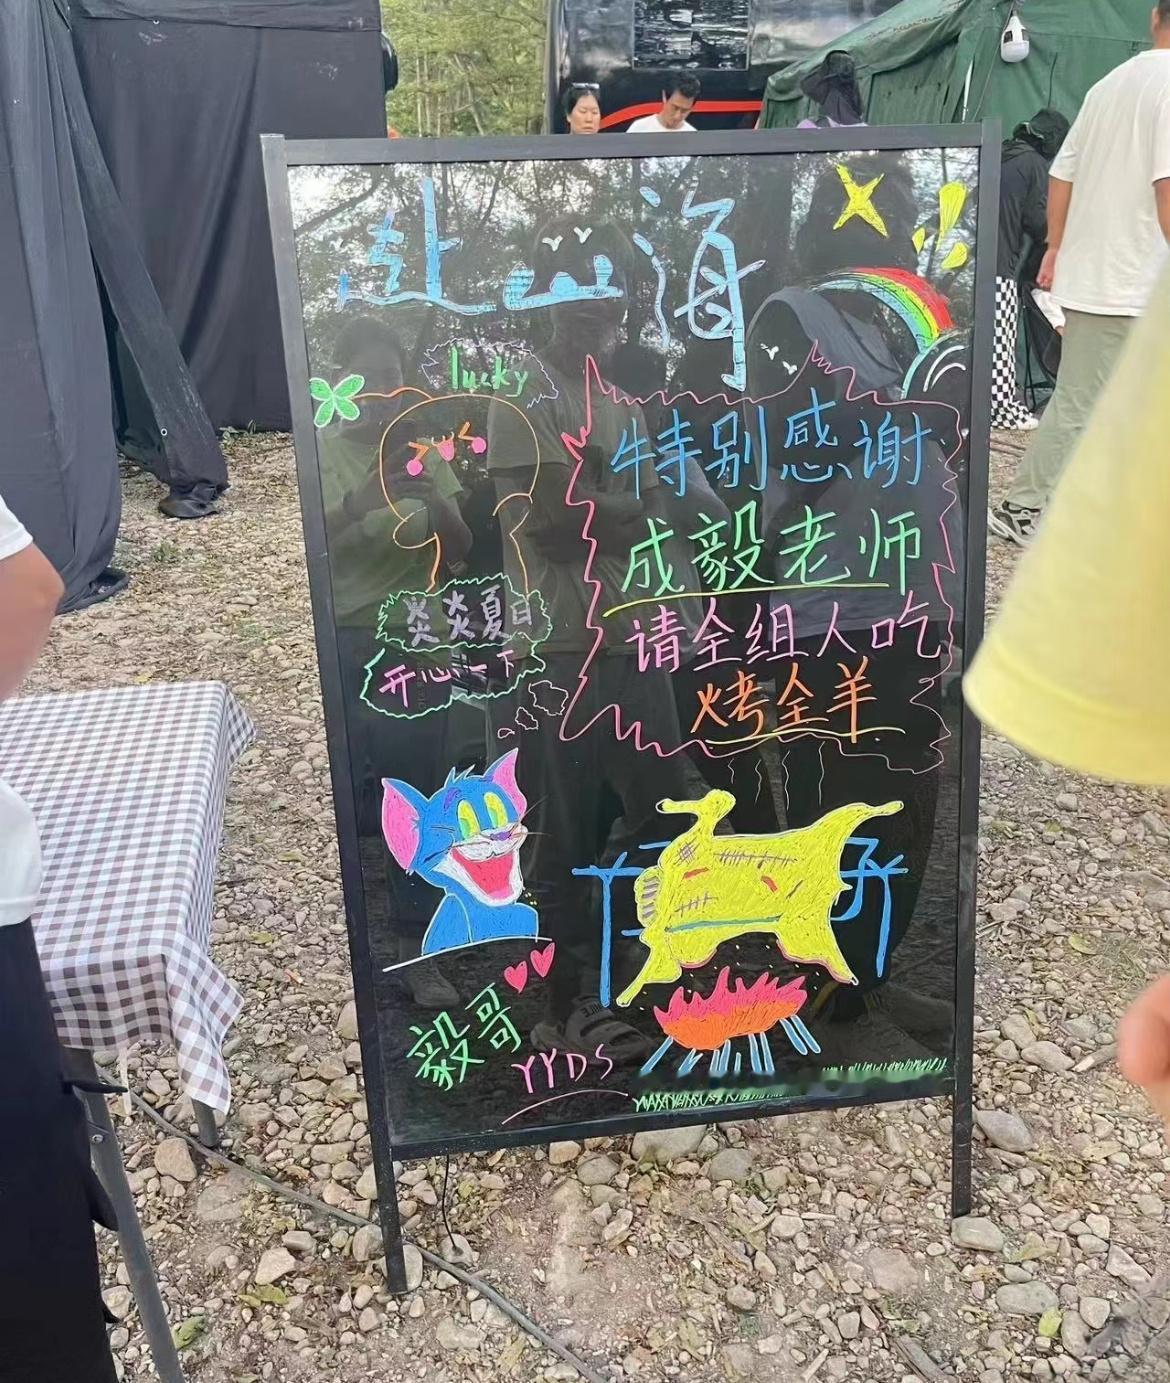 赴山海
lucky
特别感谢
成毅老师
请全组人吃
烤全羊
炎炎夏日
开心一下
毅哥
YYDS